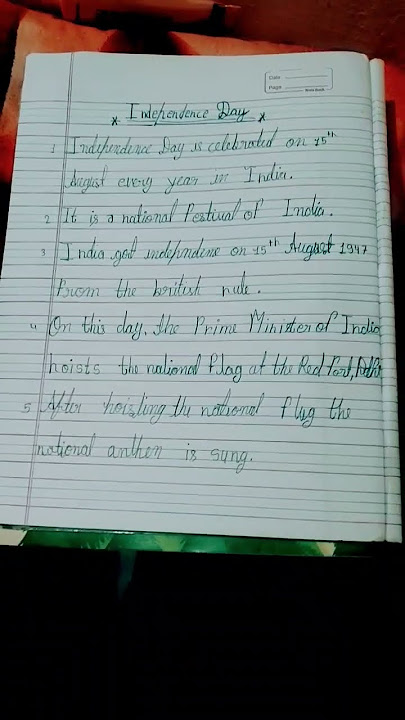 Date
Page
* Independence Day *
1 Independence Day is celebrated on 15th
August every year in India.
2 It is a national Festival of India.
3 India got independence on 15th August 1947
From the british rule.
4 On this day, the Prime Minister of India
hoists the national Flag at the Red Fort, Delhi
5 After hoisting the national flag the
national anthen is sung.